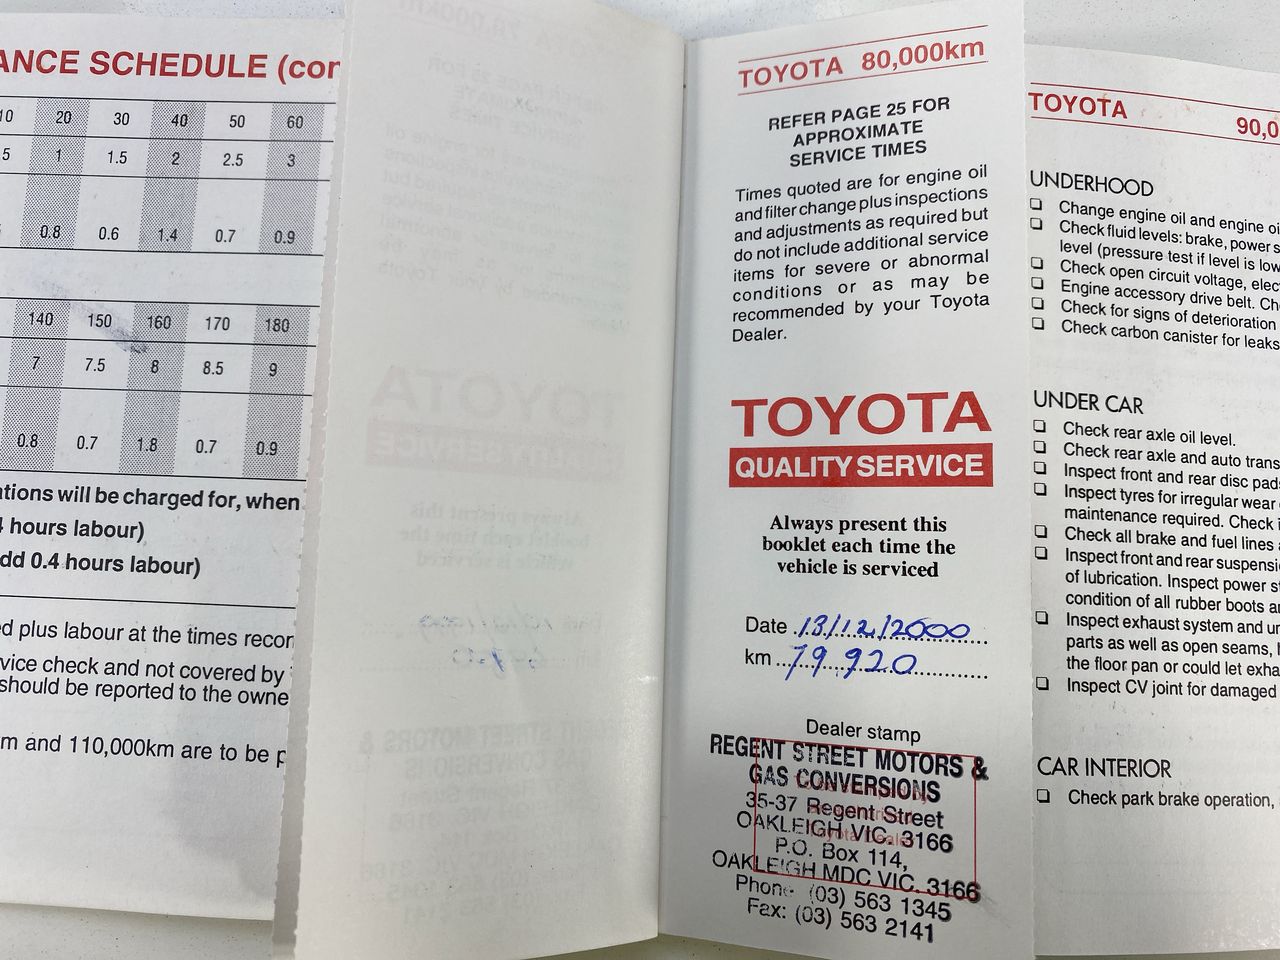 ANCE SCHEDULE (con
10 20 30 40 50 60
5 1 1.5 2 2.5 3
0.8 0.6 1.4 0.7 0.9
140 150 160 170 180
7 7.5 8 8.5 9
0.8 0.7 1.8 0.7 0.9
ations will be charged for, when
4 hours labour)
dd 0.4 hours labour)
d plus labour at the times recor
vice check and not covered by
should be reported to the owne
m and 110,000km are to be p
TOYOTA 80,000km
REFER PAGE 25 FOR
APPROXIMATE
SERVICE TIMES
Times quoted are for engine oil
and filter change plus inspections
and adjustments as required but
do not include additional service
items for severe or abnormal
conditions or as may be
recommended by your Toyota
Dealer.
TOYOTA
QUALITY SERVICE
Always present this
booklet each time the
vehicle is serviced
Date 13/12/2000
km 79,920
Dealer stamp
REGENT STREET MOTORS &
GAS CONVERSIONS
35-37 Regent Street
OAKLEIGH VIC. 3166
P.O. Box 114,
OAKLEIGH MDC VIC. 3166
Phone (03) 563 1345
Fax: (03) 563 2141
TOYOTA 90,0
UNDERHOOD
❏ Change engine oil and engine oi
❏ Check fluid levels: brake, power s
level (pressure test if level is low
❏ Check open circuit voltage, elec
❏ Engine accessory drive belt. Ch
❏ Check for signs of deterioration
❏ Check carbon canister for leaks
UNDER CAR
❏ Check rear axle oil level.
❏ Check rear axle and auto trans
❏ Inspect front and rear disc pad
❏ Inspect tyres for irregular wear
maintenance required. Check i
❏ Check all brake and fuel lines
❏ Inspect front and rear suspensi
of lubrication. Inspect power st
condition of all rubber boots a
❏ Inspect exhaust system and un
parts as well as open seams, h
the floor pan or could let exha
❏ Inspect CV joint for damaged
CAR INTERIOR
❏ Check park brake operation,